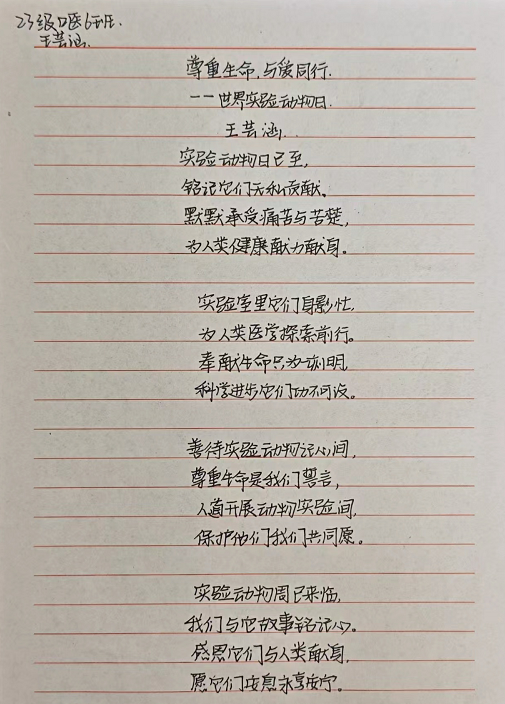 23级口医6班.
王芸涵.
尊重生命,与爱同行.
——世界实验动物日.
王芸涵.
实验动物日已至,
铭记它们无私贡献、
默默承受痛苦与苦楚,
为人类健康献力献身。
实验室里它们身影忙.
为人类医学探索前行。
奉献生命只为一刻明,
科学进步它们功不可没。
善待实验动物记心间,
尊重生命是我们誓言,
人道开展动物实验间,
保护他们我们共同愿。
实验动物周已来临,
我们与它故事铭记心。
感恩它们与人类献身,
愿它们安息永享安宁。